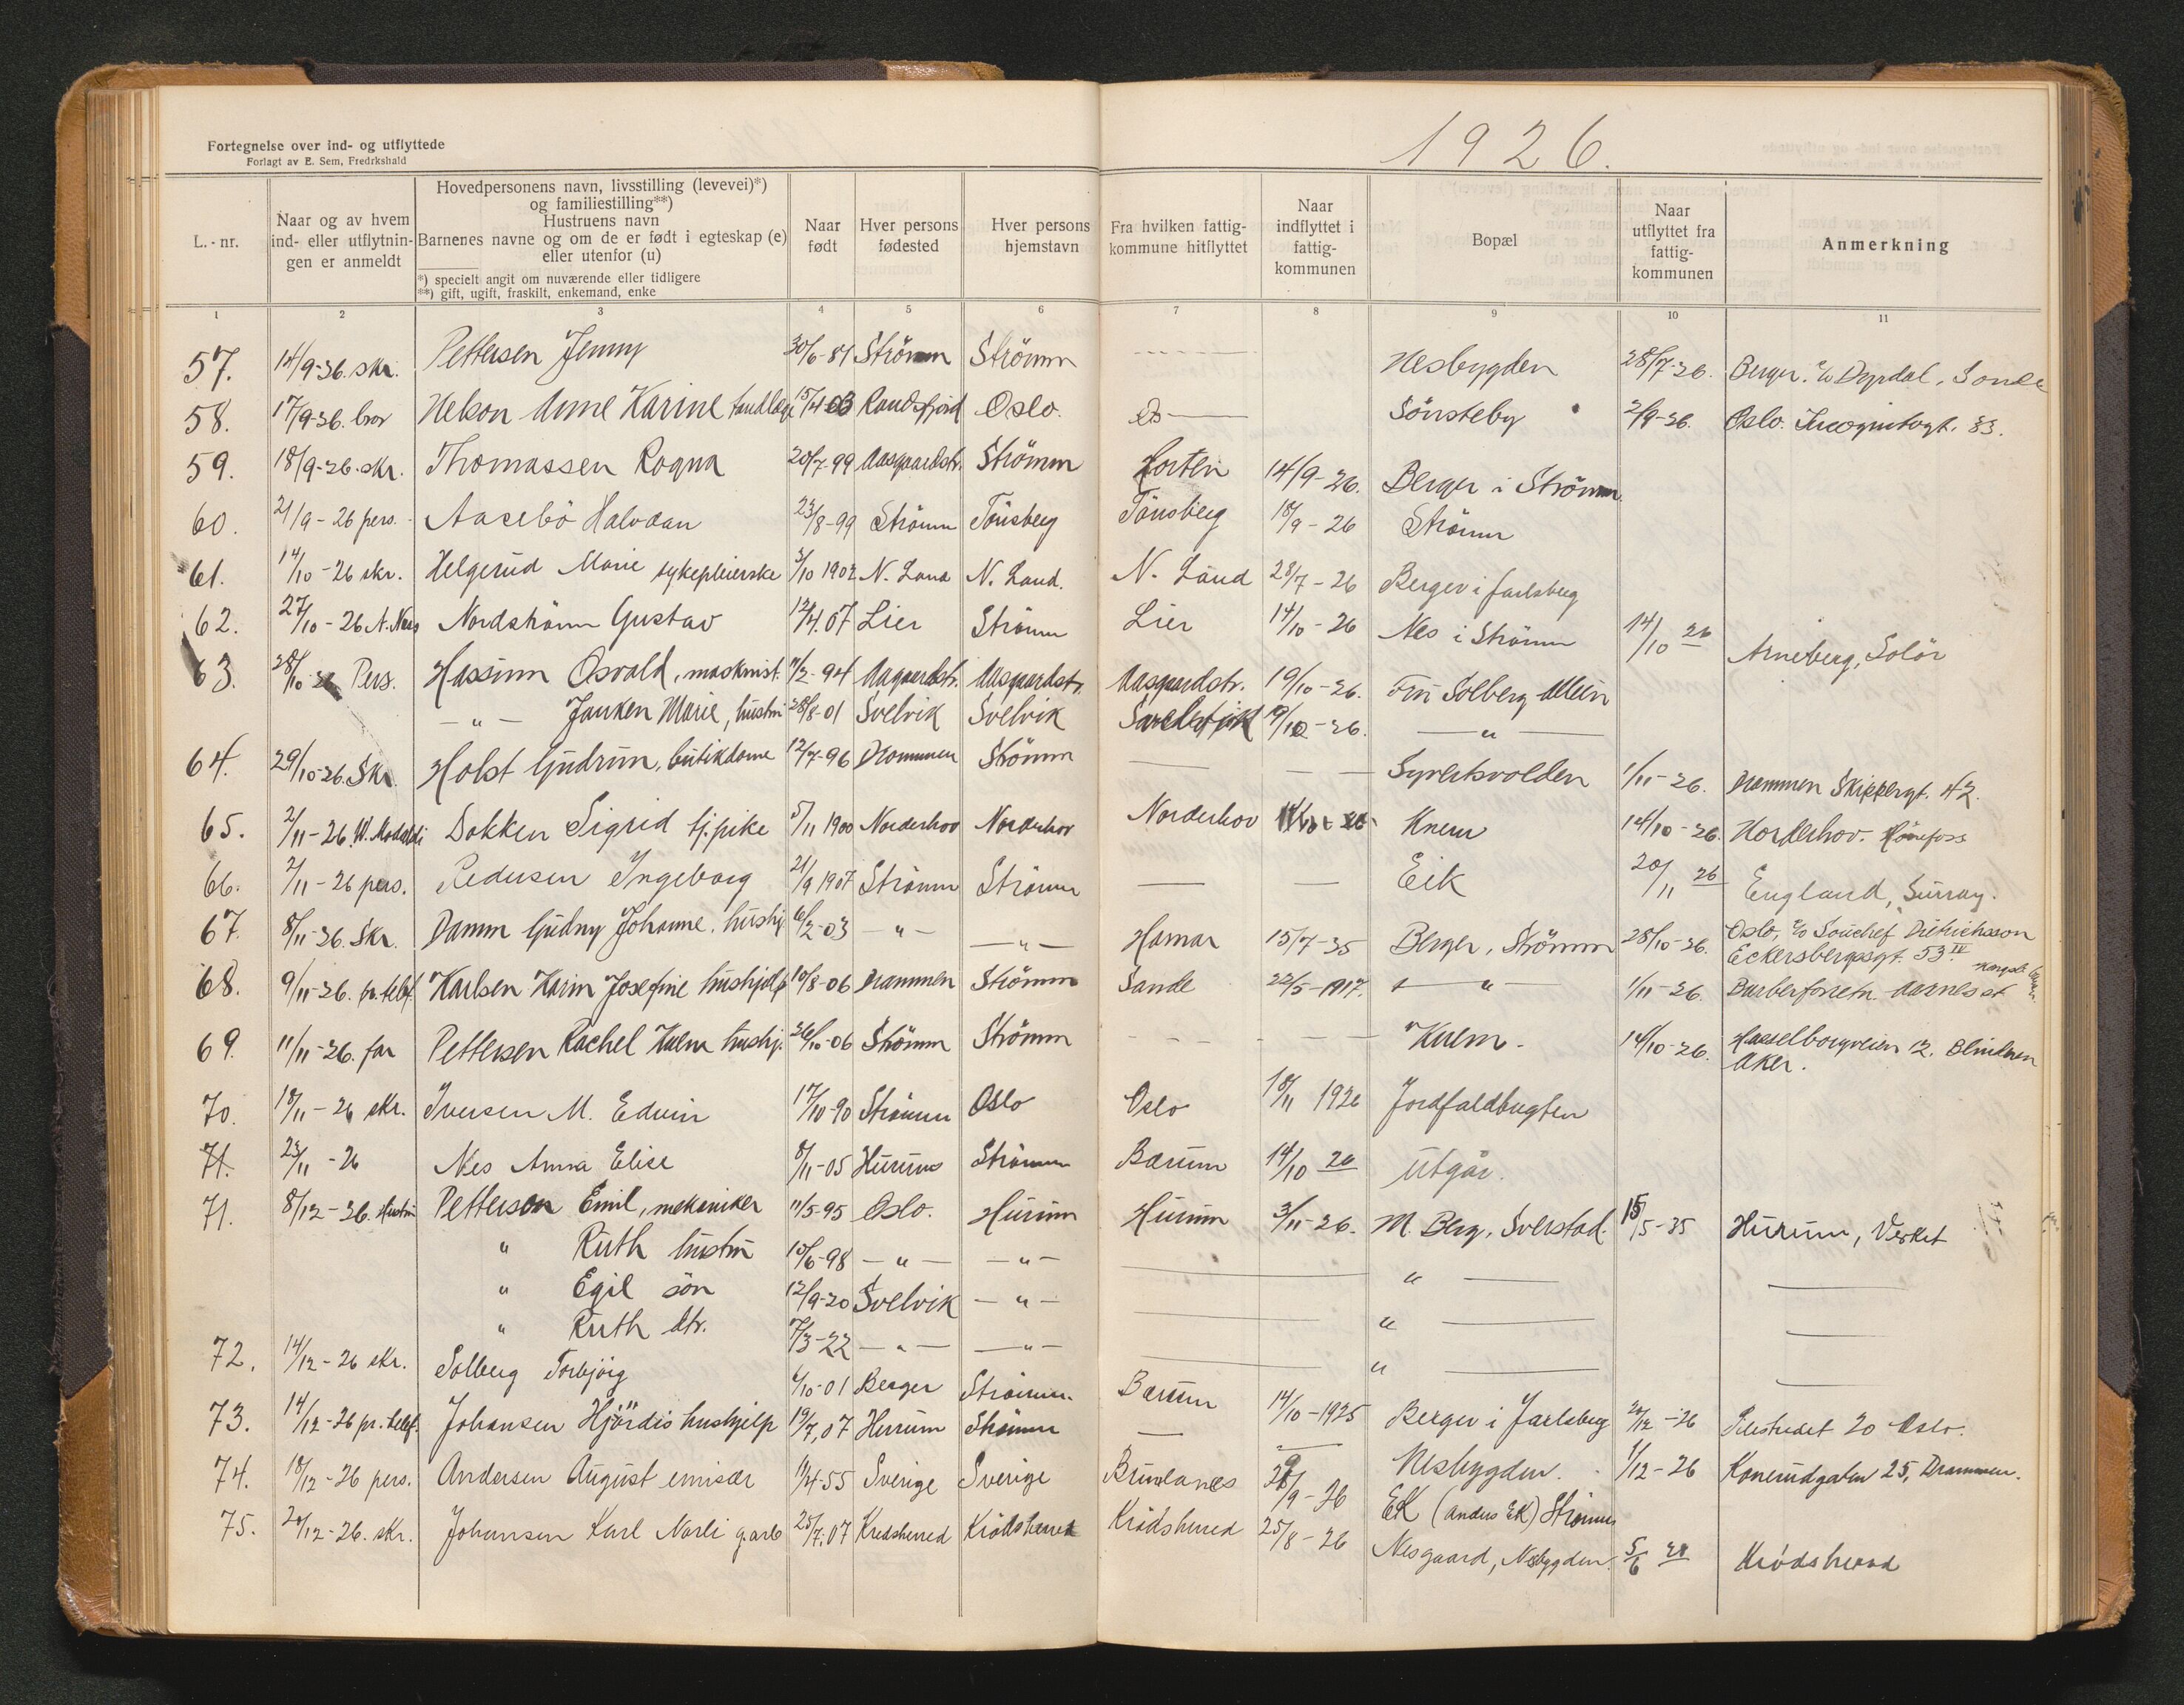 Fortegnelse over ind- og utflyttede
Forlagt av E. Sem, Fredrkshald
1926.
L.-nr.
Naar og av hvem ind- eller utflytningen er anmeldt
Hovedpersonens navn, livsstilling (levevei)*)
og familiestilling**)
Hustruens navn
Barnenes navne og om de er født i egteskap (e)
eller utenfor (u)
*) specielt angit om nuværende eller tidligere
**) gift, ugift, fraskilt, enkemand, enke
Naar født
Hver persons fødested
Hver persons hjemstavn
Fra hvilken fattigkommune hitflyttet
Naar indflyttet i fattigkommunen
Bopæl
Naar utflyttet fra fattigkommunen
Anmerkning
1 2 3 4 5 6 7 8 9 10 11
57. 14/9-26. skr. Pettersen Jenny 30/6-81 Strömm Strömm Nesbygden 28/7-26. Berger. c/o Dyrdal, Sande
58. 17/9-26. bror Helson Anne Karine tandlæge 15/4-03 Randsfjord Oslo. Sönsteby 2/9-26. Oslo. Incognitogt. 33.
59. 18/9-26. skr. Thomassen Ragna 20/7-99 Aasgaardstr. Strömm Horten 14/9-26. Berger i Strömm
60. 21/9-26 pers. Aasebö Halvdan 23/8-99 Strömm Tönsberg Tönsberg 18/9-26 Strömm
61. 14/10-26 skr. Helgerud Marie sykepleierske 3/10 1902 N. Land N. Land. N. Land 28/7-26 Berger i Jarlsberg
62. 27/10-26 A. Nes Nordström Gustav 12/4.07 Lier Strömm Lier 14/10-26 Nes i Strömm 14/10 26 Arneberg, Solör
63. 28/10-26 Pers. Hassum Osvald, maskinist. 11/2-94 Aagaardstr. Aasgaardstr. Aasgaardstr. 19/10-26. Fru Solberg Alleen
-"- Janken Marie, hustru 28/8-01 Svelvik Svelvik 19/10-26. -"-
64. 29/10-26. Skr. Holst Gudrun, butikdame 12/7-96 Drammen Strömm Syvertsvolden 1/11-26. Drammen Skippergt. 42.
65. 2/11-26. Dokken Sigrid tj.pike 5/11 1900 Norderhov Norderhov Norderhov Knem 14/10-26. Norderhov. Hönefoss
66. 2/11-26 pers. Pedersen Ingeborg 21/9 1907 Strömm Strömm Eik 20/11 26 England, Surray.
67. 8/11-26. Skr. Damm Gudny Johanne. hushj 6/2-03 -"- -"- Hamar 15/7-25 Berger, Strömm 28/10-26. Oslo, c/o Souchef Dietrichsson
Eckersbergsgt. 53 IV
68. 9/11-26. pr. telef. Karlsen Karin Josefine hushjelp 10/8-06 Drammen Strömm Sande 22/5-1917. -"- 1/11-26. Barberforretn. Aarnes st
69. 11/11-26. far Pettersen Rachel Kalm hushj. 26/10-06 Strömm Strömm Kalm. 14/10-26. Hasselborgveien 12. Blindern
Aker.
70. 18/11-26 skr. Iversen M. Edvin 17/10-90 Strömm Oslo Oslo 18/11 1926 Jordfaldbugten
71. 23/11-26 Nes Anna Elise 8/11-05 Hurum Strömm Bærum 14/10 26 Utgår.
71. 8/12-26. Hustru Petterson Emil, mekaniker 11/5-95 Oslo. Hurum Hurum 3/11-26. M. Berg, Sverstad. 15/5-35 Hurum, Verket
" Ruth hustru 10/6-98 -"- -"- "
" Egil sön 12/9-20 Svelvik -"- "
" Ruth dtr. 7/3-22 -"- -"- "
72. 14/12-26 skr. Solberg Torbjörg 6/10-01 Berger Strömm. Bærum 14/10-1925 Berger i Jarlsberg Pilestredet 20 Oslo.
73. 14/12-26 pr. telef. Johansen Hjördis hushjelp 19/7,07 Hurum Strömm Nesbygden. 1/12-26 Konerudgaten 25, Drammen.
74. 18/12-26 pers. Andersen August emisær 11/4-55 Sverige Sverige Brunlanes EK (Anders EK) Strömm
75. 20/12-26. skr. Johansen Karl Narli g.arb 25/7.07 Kredsherred Krödsherred Krödsherred 25/8-26 Nesgaard, Nesbygden. Krödsherad